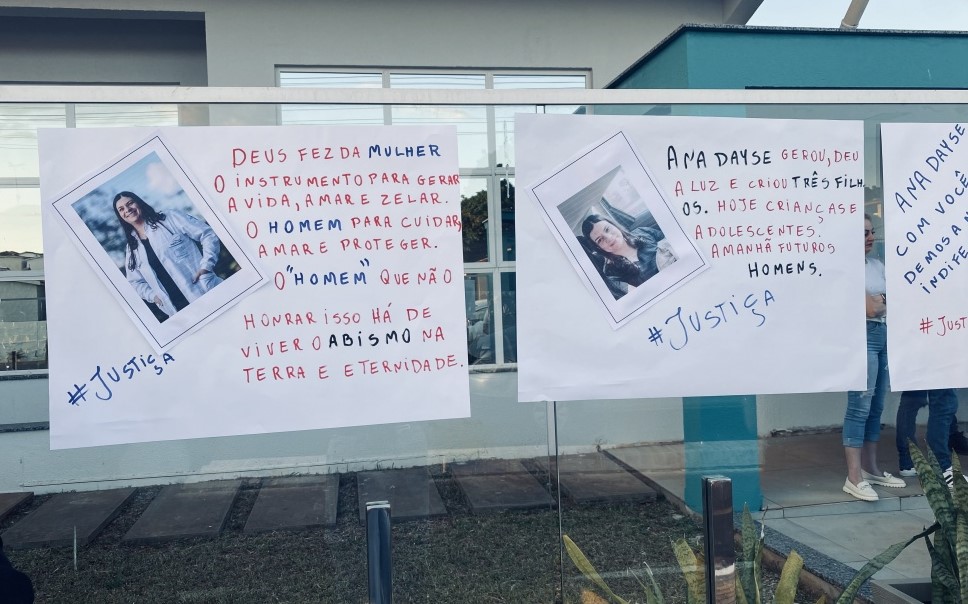 DEUS FEZ DA MULHER
O INSTRUMENTO PARA GERAR
A VIDA, AMAR E ZELAR.
O HOMEM PARA CUIDAR,
AMAR E PROTEGER.
O "HOMEM" QUE NÃO
HONRAR ISSO HÁ DE
VIVER O ABISMO NA
TERRA E ETERNIDADE.
#JUSTIÇA
ANA DAYSE GEROU, DEU
A LUZ E CRIOU TRÊS FILH
OS. HOJE CRIANÇAS E
ADOLESCENTES.
AMANHÃ FUTUROS
HOMENS.
#JUSTIÇA
ANA DAYSE
COM VOCÊ
DEMOS A
INDIFE
#JUST